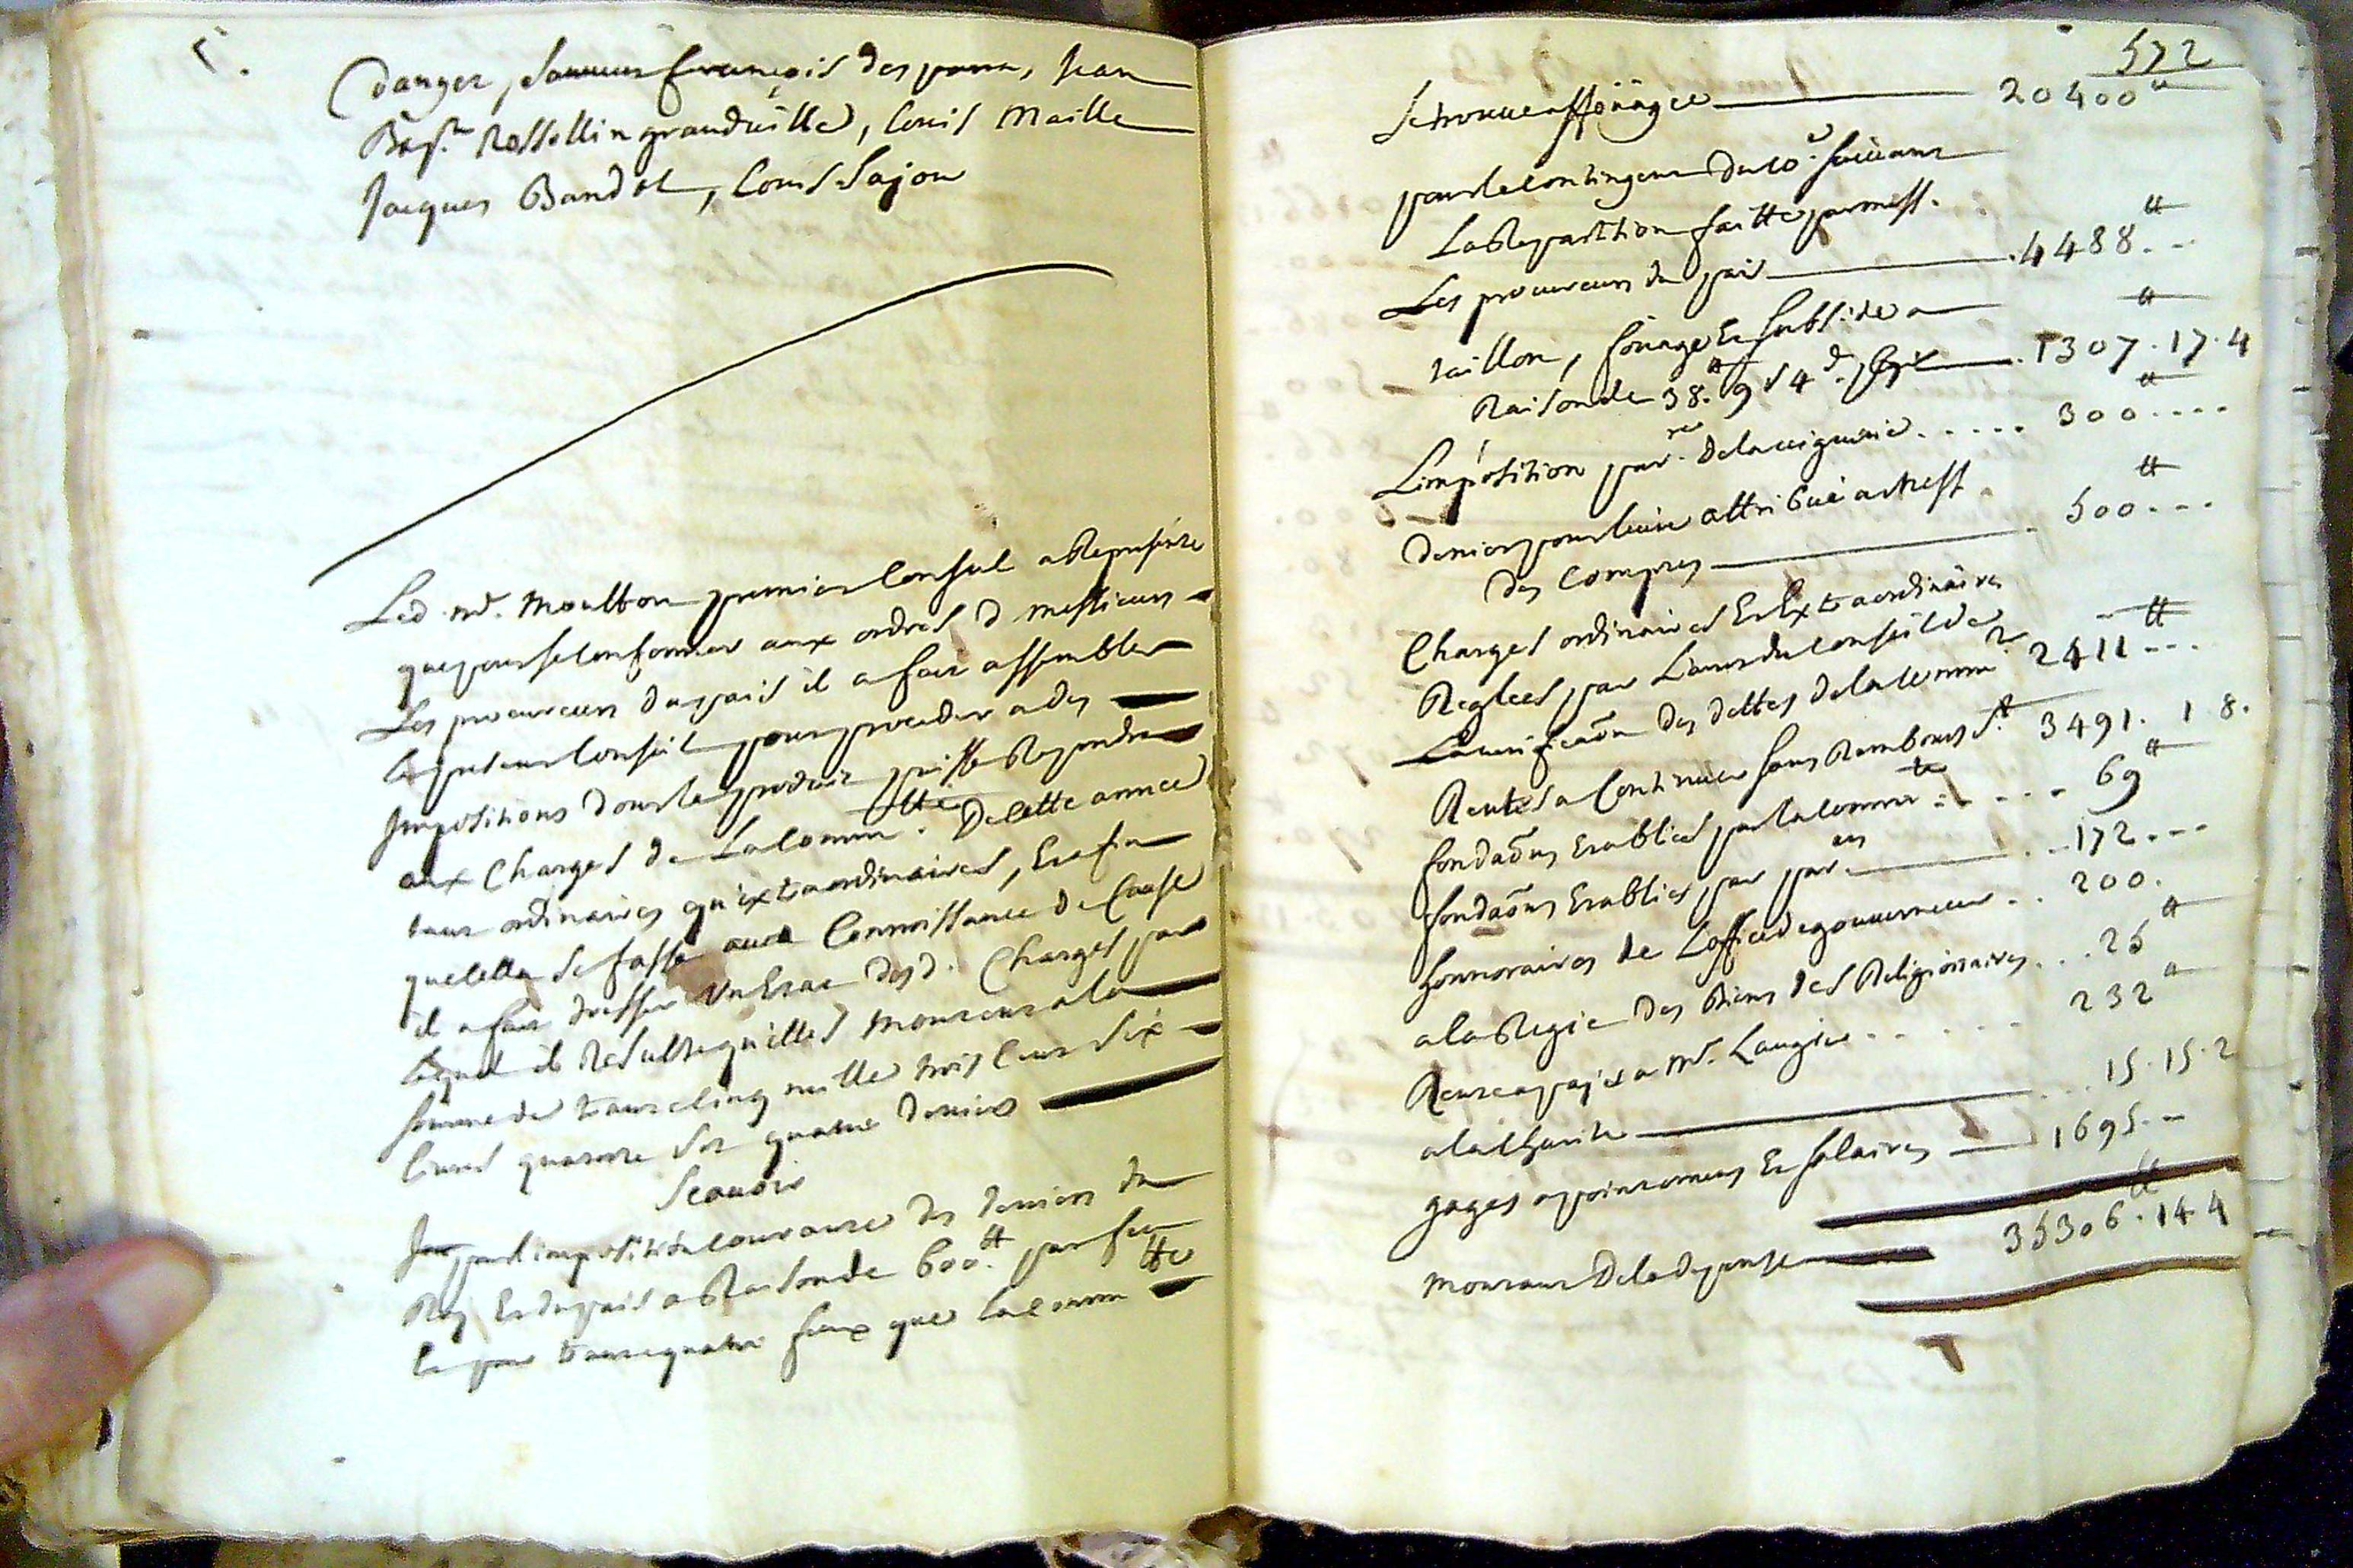 danger, Sauveur françois des parra, Jean
Bap.te Rossollin granduille, Louis Maille
Jacques Bandol, Louis Sajou
Led. mr. Moultou premier Consul a Representé
que pour se Conformer aux ordres d messieurs
Les procureurs du pais il a fait assembler
le present Conseil pour proceder a des
Impositions dont le produit puisse Repondre
aux Charges de La Comm.tté De cette année
tant ordinaires qu'extraordinaires, Et afin
que cella se fasse avec Connoissance de Cause
il a fait dresser un Etat desd. Charges par
lequel il Resulte qu'elles montent a la
somme de trante cinq mille trois Cent six
livres quatorze sols quatre deniers
Scavoir
pour l'imposition Courante des deniers du
Roy Et du pais a Raison de 600.tt par feu
le pour trante quatre feux que la Comm.tté
572
Se trouve affouagée 20400tt
pour le Contingent du 10.e suivant
La Repartition faitte par mess.
Les procureurs du pais 4488tt
taillon, fouage Et subside a
Raison de 38.tt 9 s 4 d. p. feu 1307.tt 17.4
L'imposition par.re de la viguerie 300tt
deniers pour livre attribué a Mess.
des Comptes 500tt
Charges ordinaires Et Extraordinaires
Reglées par L'arret du Conseil de
La verification des dettes de la Comm.té 2411tt
Rentes a Continuer sans Rembours.t 3491.tt 1 8.
fondaõns Etablies par la Comm.te 69tt
fondaõns Etablies par par.ers 172
honnoraires de L'office de gouverneur 200.
a la Regie des Biens des Religionnaires 25tt
Rente a payer a Mr. Laugier 232tt
a la Charité 15.15.2
gages apointements Et salaires 1695
montant De la depense 35306.tt 14 4